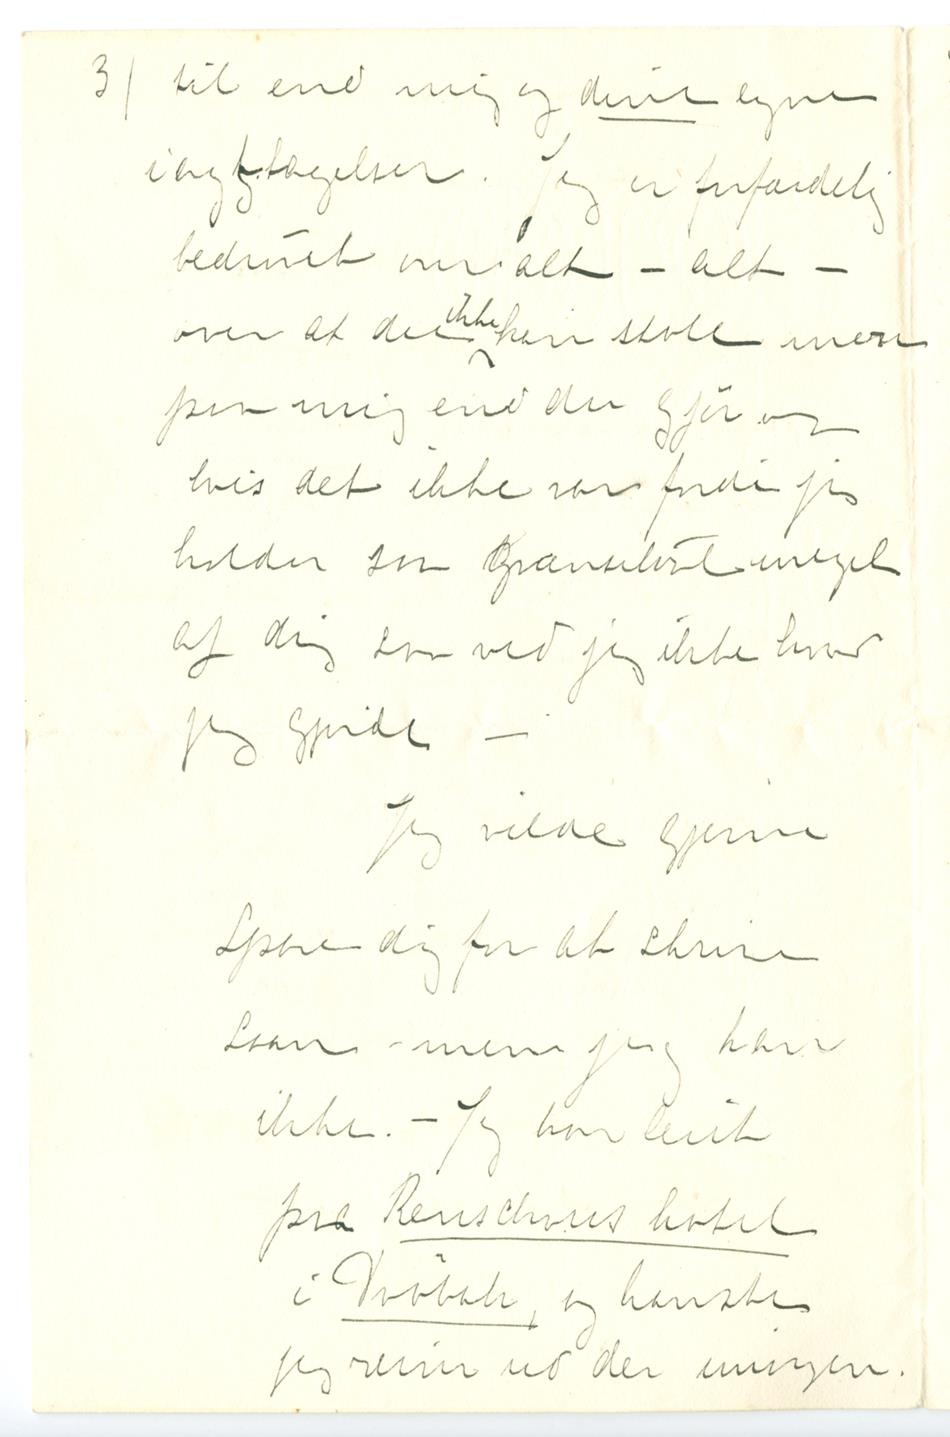 3/ til end mig og dine egne
iagttagelser. Jeg er forfærdelig
bedrøvet over alt – alt –
over at du ikke kan stole mere
paa mig end du gjør og
hvis det ikke var fordi jeg
holder saa grænseløst meget
af dig saa ved jeg ikke hvad
jeg gjorde –
Jeg vilde gjerne
spare dig for at skrive
saan – men jeg kan
ikke. – Jeg har leiet
paa Renschous hotel
i Drøbak, og kanske
jeg reiser ud der imorgen.